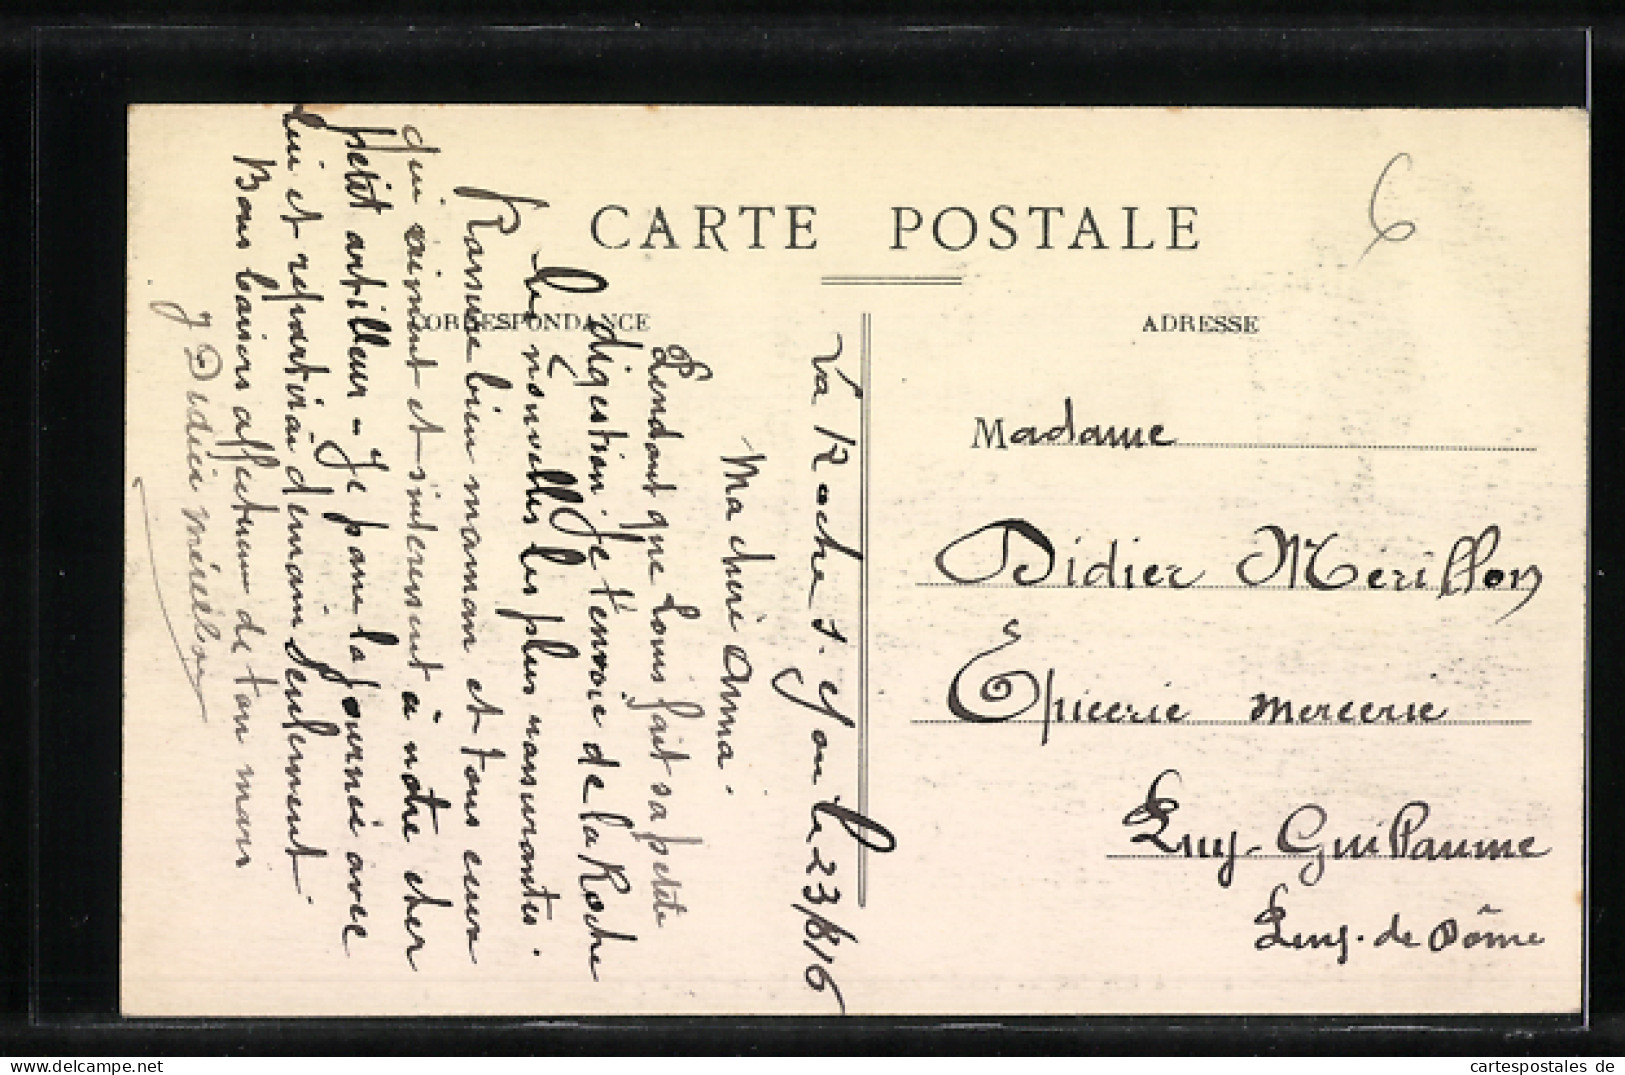 CARTE POSTALE
6
CORRESPONDANCE
ADRESSE
La Roche s. Yon le 23/8/16
Ma chère Anna.
Pendant que Louis fait sa petite
digestion je t'envoie de la Roche
les nouvelles les plus rassurantes.
Rassure bien maman et tous ceux
qui aiment et s'interessent à notre cher
petit artilleur - Je passe la journée avec
lui et repartirai demain seulement
Bons baisers affectueux de ton mari
J Didier Mérillon
Madame
Didier Merillon
Épicerie mercerie
Puy-Guillaume
Puy-de Dôme
cartespostales de